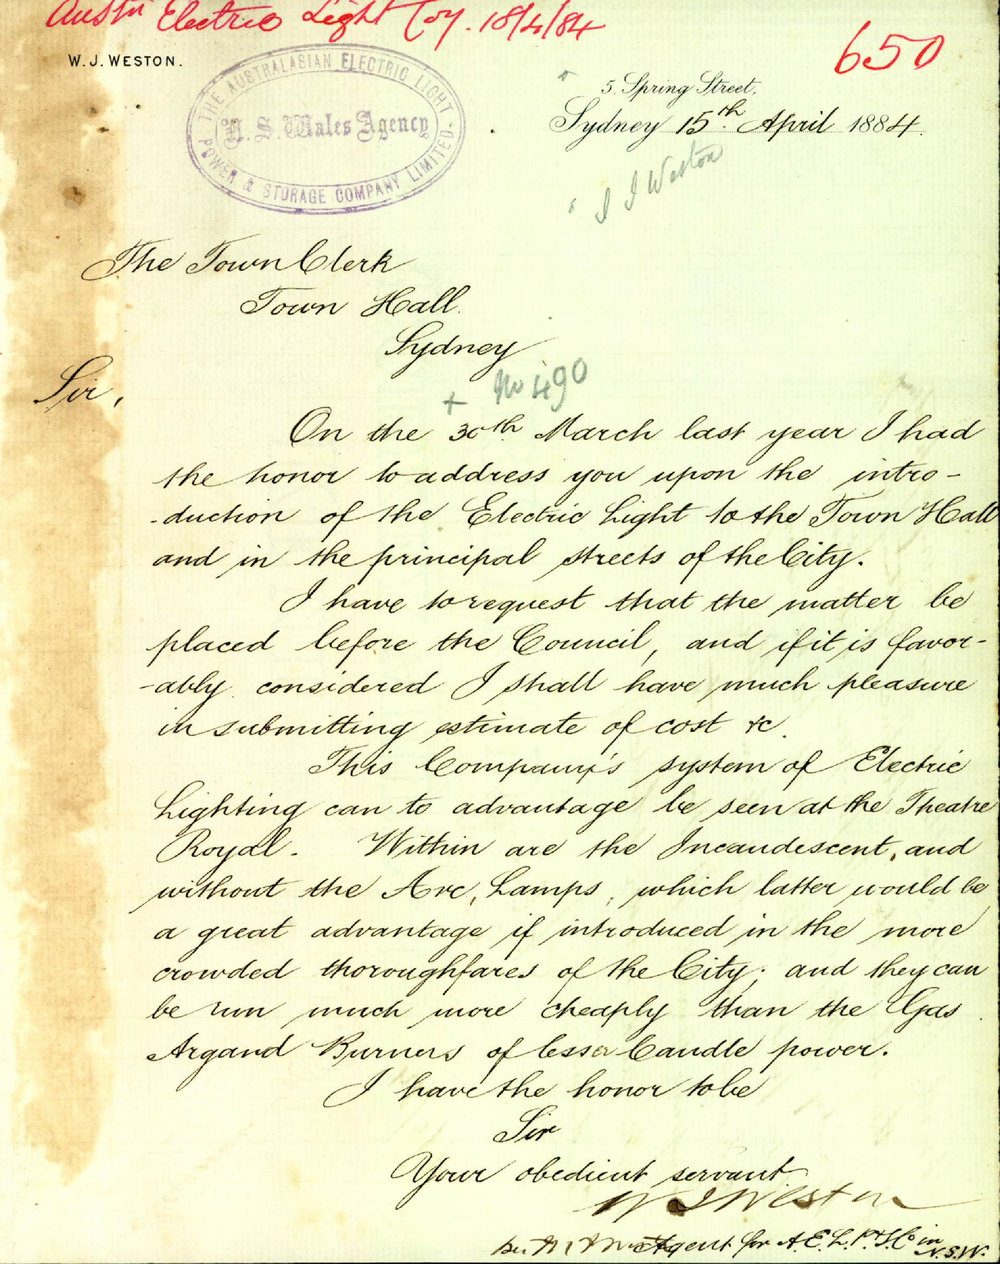 Austn Electric Light Coy. 18/4/84
650
W. J. WESTON.
THE AUSTRALASIAN ELECTRIC LIGHT
N. S. Wales Agency
POWER & STORAGE COMPANY LIMITED.
5. Spring Street.
Sydney 15th April 1884.
W J Weston
The Town Clerk
Town Hall.
Sydney
+ No 490
Sir,
On the 30th March last year I had
the honor to address you upon the intro-
-duction of the Electric Light to the Town Hall
and in the principal streets of the City.
I have to request that the matter be
placed before the Council, and if it is favor-
-ably considered I shall have much pleasure
in submitting estimate of cost &c.
This Company's system of Electric
Lighting can to advantage be seen at the Theatre
Royal. Within are the Incandescent, and
without the Arc, Lamps, which latter would be
a great advantage if introduced in the more
crowded thoroughfares of the City; and they can
be run much more cheaply than the Gas
Argand Burners of lesser Candle power.
I have the honor to be
Sir
Your obedient servant
W J Weston
Agent for A.E.L.P.&S.Co in
N.S.W.